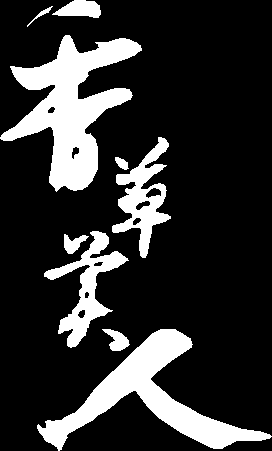 香草美人